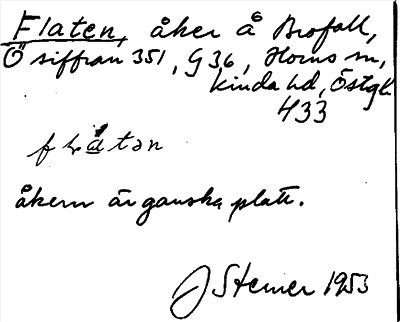 Flaten, åker å Brofall,
Ö siffran 351, G 36, Horns sn,
Kinda hd, Östgl.
433
åkern är ganska platt.
J Stemer 1953